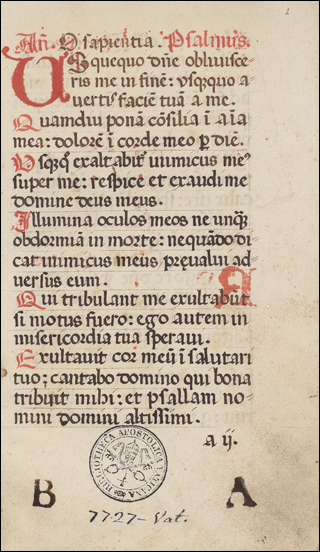 2
Añ. O sapientia. Psalmus.
USquequo dñe obliuisce-
ris me in finē: vsquequo a-
uertis faciē tuā a me.
Quamdiu ponā cōsilia ī aīa
mea: dolorē ī corde meo p̄ diē.
Vsq̄q̄ exaltabit᷑ inimicus me᷒
super me: respice et exaudi me
domine deus meus.
Illumina oculos meos ne unq̄
obdormiā in morte: nequādo di
cat inimicus meus preualui ad
versus eum.
Qui tribulant me exultabūt
si motus fuero: ego autem in
misericordia tua speraui.
Exultauit cor meū ī salutari
tuo; cantabo domino qui bona
tribuit mihi: et psallam no-
mini domini altissimi.
a ij.
BIBLIOTHECA APOSTOLICA VATICANA
B A
7727-Vat.